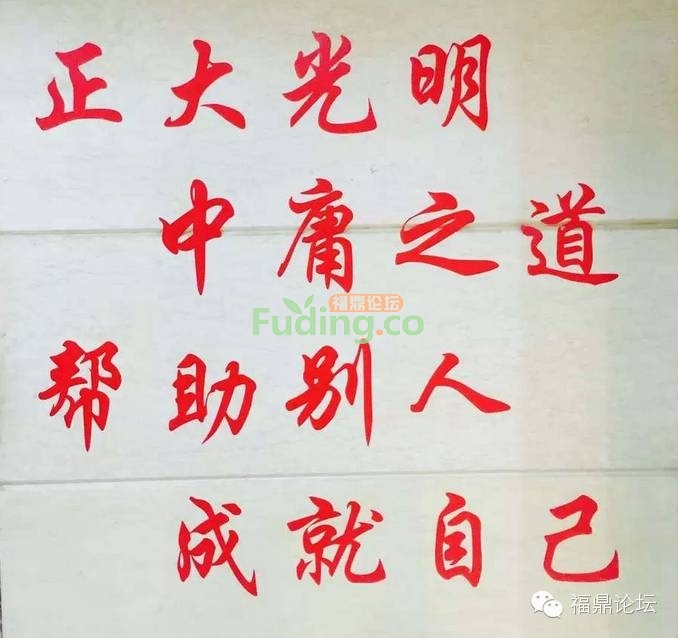 正大光明
中庸之道
福鼎论坛
Fuding.co
帮助别人
成就自己
福鼎论坛